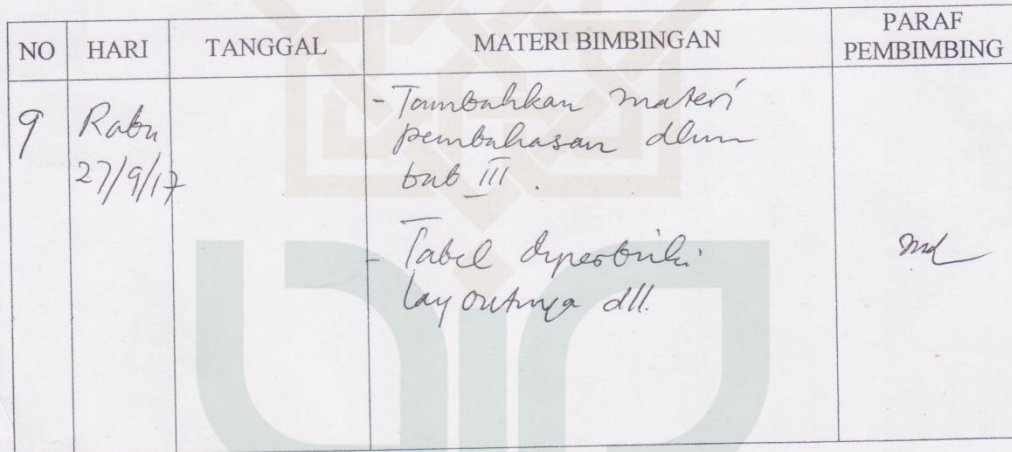 NO HARI TANGGAL MATERI BIMBINGAN PARAF PEMBIMBING
9 Rabu - Tambahkan materi
27/9/17 pembahasan dlm
bab III.
- Tabel diperbaiki
layoutnya dll.